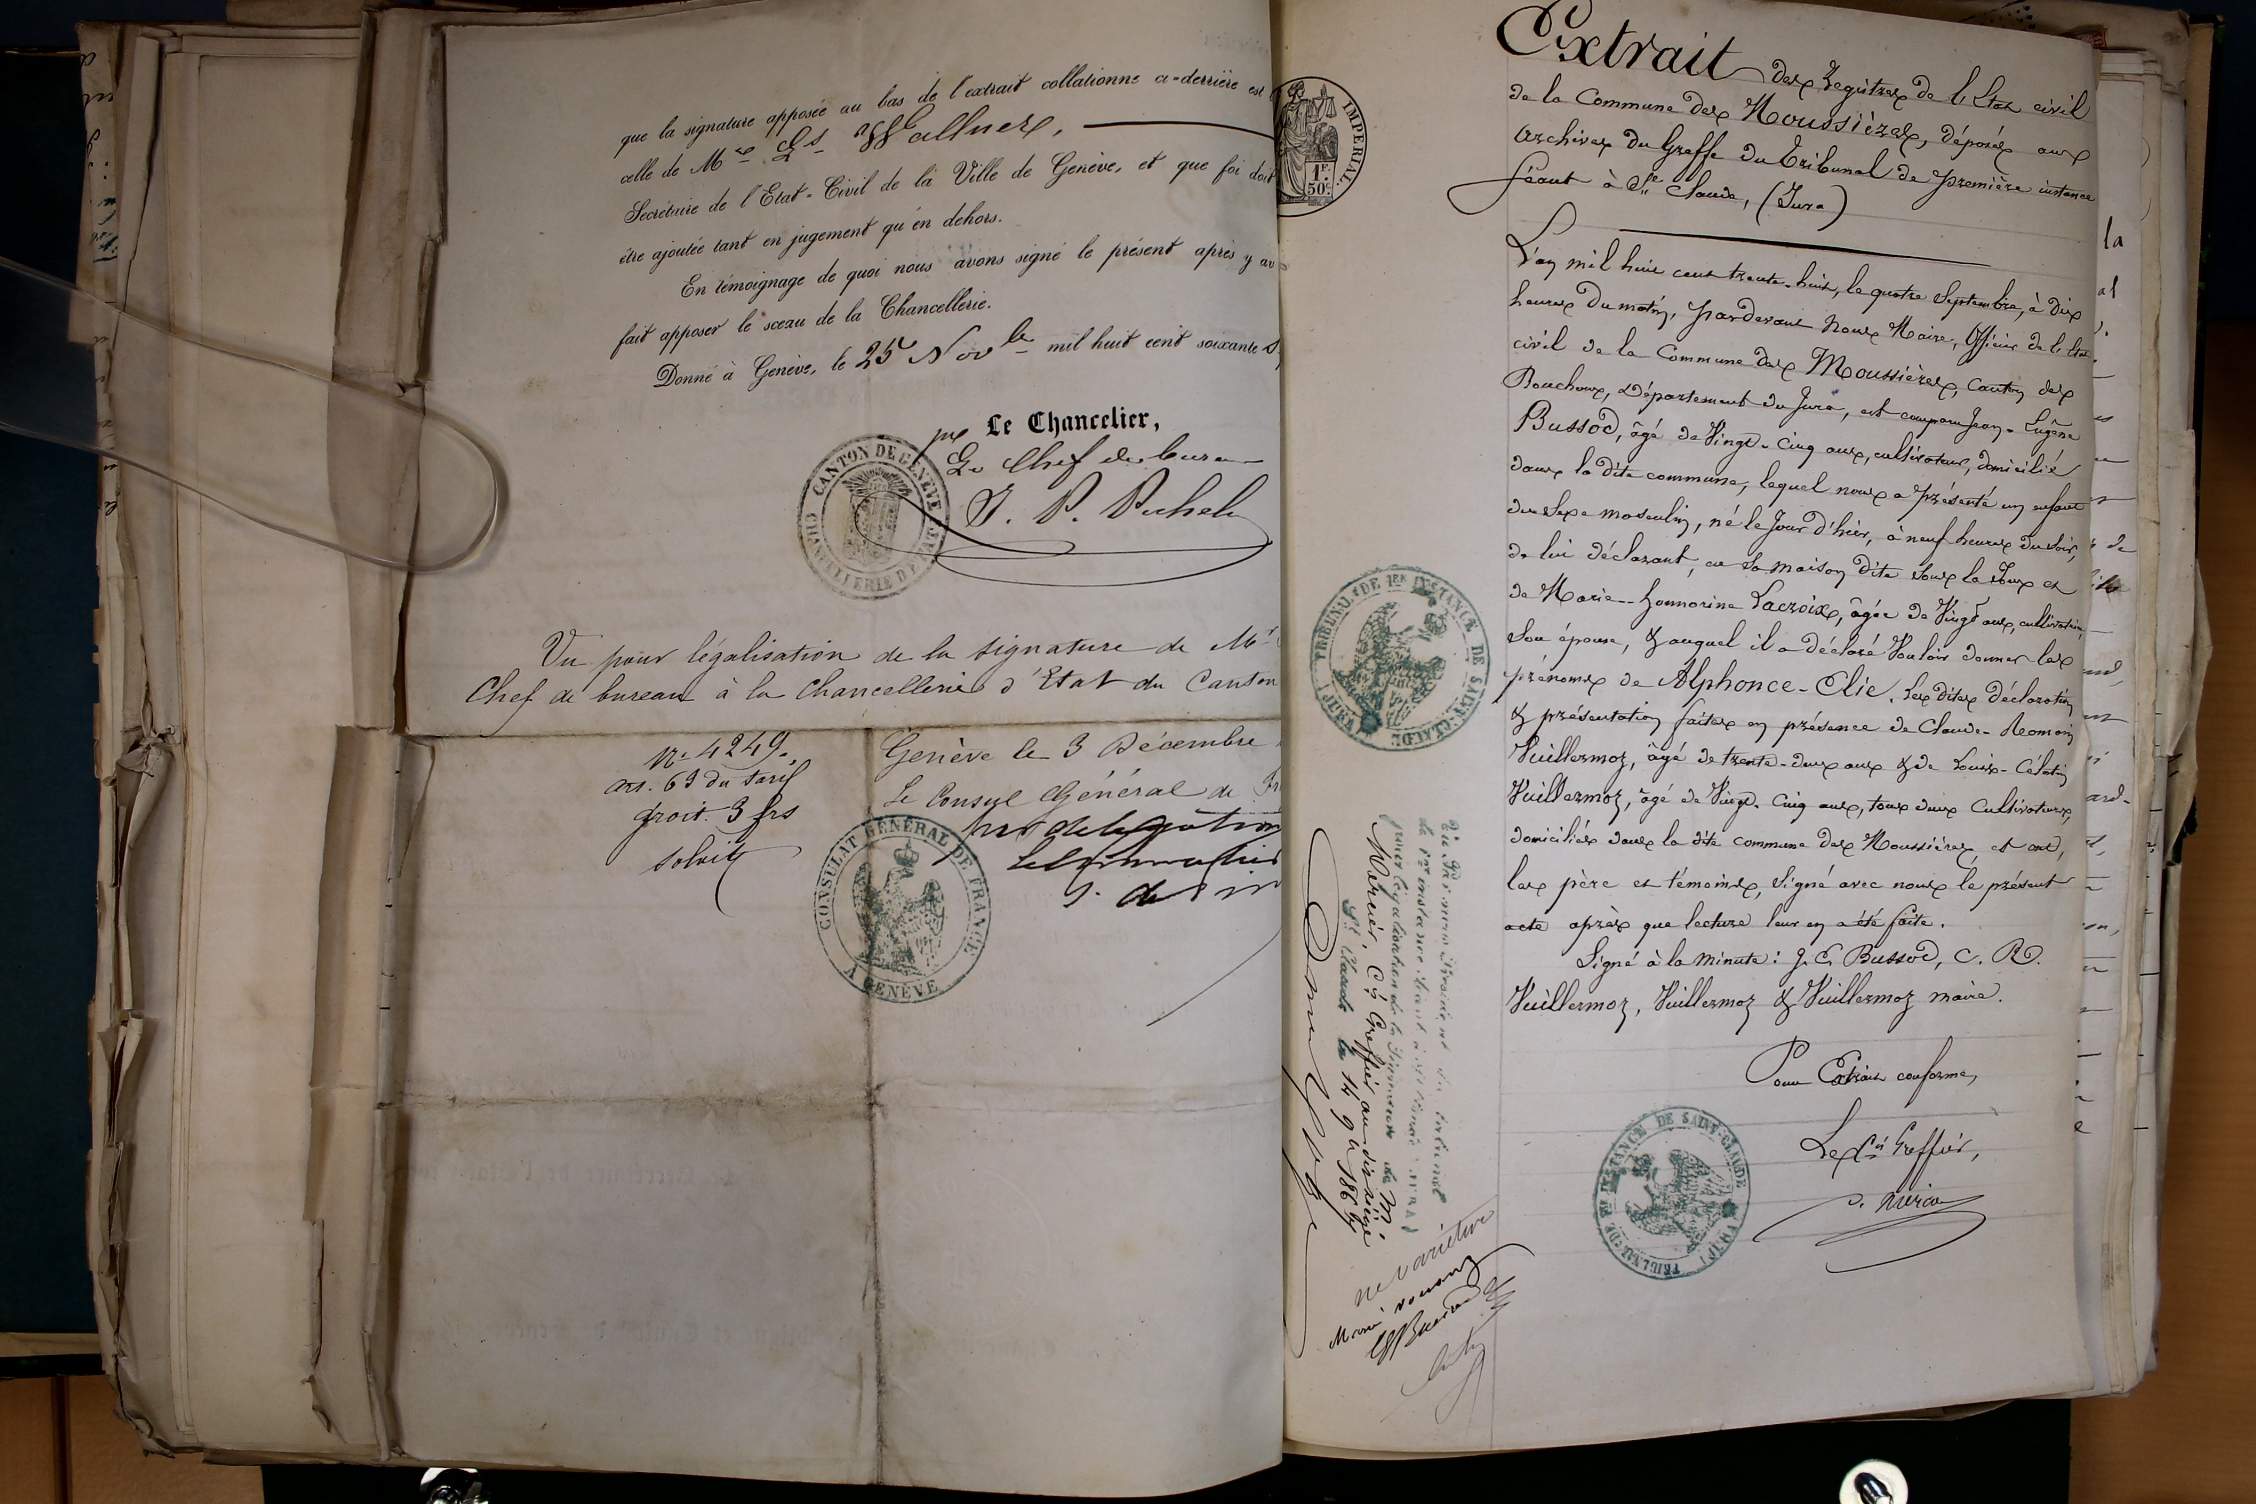 que la signature apposée au bas de l'extrait collationné ci-derrière est
celle de Mr Ls Wallner,
Secrétaire de l'Etat-Civil de la Ville de Genève, et que foi doit
être ajoutée tant en jugement qu'en dehors.
En témoignage de quoi nous avons signé le présent après y av
fait apposer le sceau de la Chancellerie.
Donné à Genève, le 25 Novbre mil huit cent soixante s
Le Chancelier,
pr
Le Chef de bureau
CANTON DE GENÈVE
CHANCELLERIE D'ETAT
Vu pour légalisation de la signature de Mr
Chef de bureau à la Chancellerie d'Etat du Canton
No 4249.
Genève le 3 Décembre
art. 63 du tarif
Le Consul Général de Fr
droit. 3 frs
par délégation
solvit
CONSULAT GÉNÉRAL DE FRANCE
A GENÈVE
IMPERIAL.
1F.
50c.
Extrait des Registres de l'Etat civil
de la Commune des Moussières, déposés aux
Archives du Greffe du Tribunal de première instance
séant à St Claude, (Jura)
L'an mil huit cent trente-huit, le quatre Septembre, à dix
heures du matin, pardevant Nous Maire, Officier de l'Etat
civil de la Commune des Moussières, Canton des
Bouchoux, Département du Jura, est comparu Jean-Eugène
Bussod, âgé de Vingt-Cinq ans, cultivateur, domicilié
dans la dite commune, lequel nous a présenté un enfant
du Sexe masculin, né le Jour d'hier, à neuf heures du soir,
de lui déclarant, en sa maison dite Sous la Joux et
de Marie-Honnorine Lacroix, âgée de Vingt ans, cultivatrice,
son épouse, & auquel il a déclaré Vouloir donner les
prénoms de Alphonce-Elie. Les dites déclaration
& présentation faites en présence de Claude-Romain
Vuillermoz, âgé de trente-deux ans & de Louis-Célestin
Vuillermoz, âgé de Vingt-Cinq ans, tous deux Cultivateurs,
domiciliés dans la dite commune des Moussières, et ont,
les père et témoins, signé avec nous le présent
acte après que lecture leur en a été faite.
Signé à la minute: J. E. Bussod, C. R.
Vuillermoz, Vuillermoz & Vuillermoz maire.
Pour Extrait conforme,
Le Cis Greffier,
TRIBUNAL DE 1ER INSTANCE DE SAINT-CLAUDE
(JURA)
TRIBUNAL DE 1ER INSTANCE DE SAINT-CLAUDE
(JURA)
Mercier, Cis Greffier au dit siège
St Claude le 14 9bre 186
ne varietur